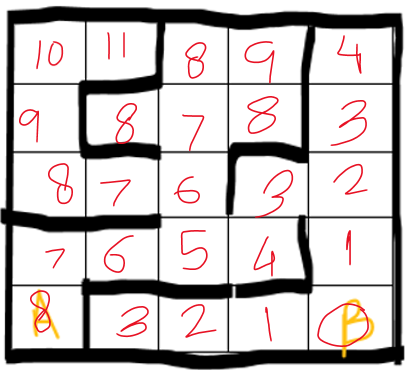 10 11 8 9 4
9 8 7 8 3
8 7 6 3 2
7 6 5 4 1
A 8 3 2 1 B